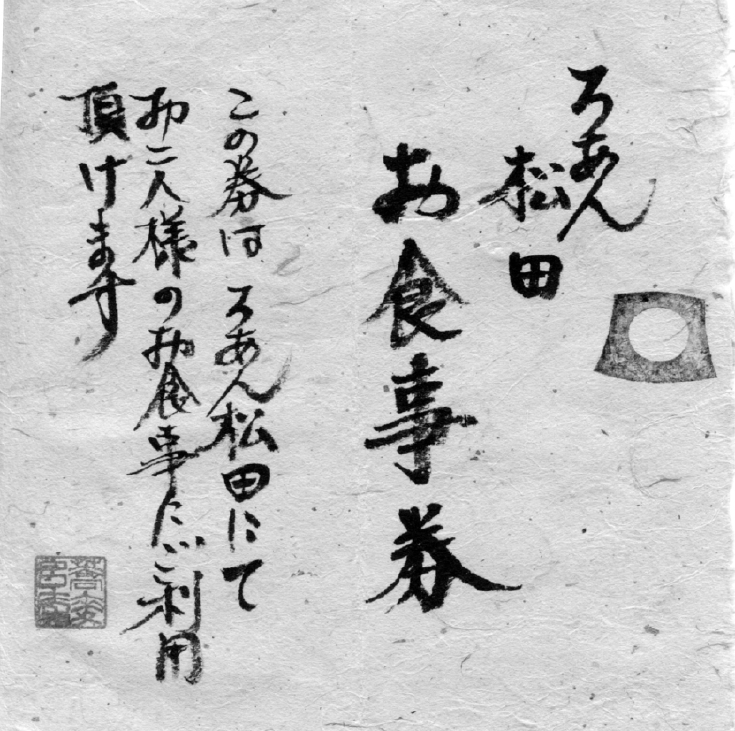 ろあん
松田
お食事券
この券は ろあん松田にて
お二人様のお食事にご利用
頂けます